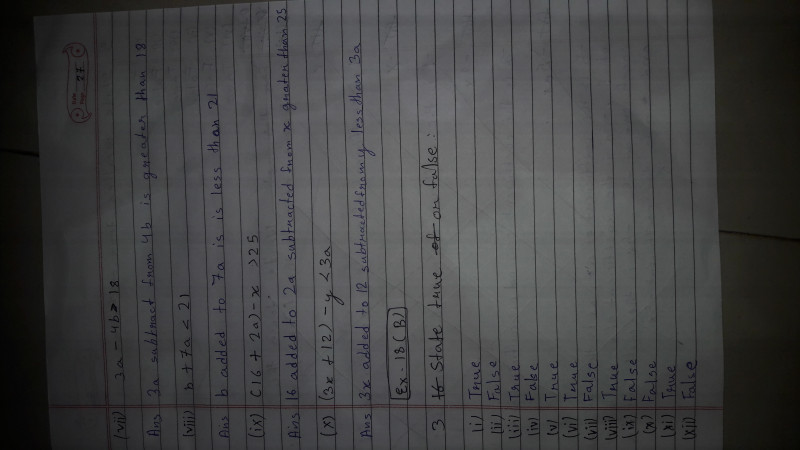 27
(vii) 3a - 4b > 18
Ans 3a subtract from 4b is greater than 18
(viii) b + 7a < 21
Ans b added to 7a is is less than 21
(ix) (16 + 2a) - x > 25
Ans 16 added to 2a subtracted from x greater than 25
(x) (3x + 12) - y < 3a
Ans 3x added to 12 subtracted from y less than 3a
Ex - 18 (B)
3 State true or false:
(i) True
(ii) False
(iii) True
(iv) False
(v) True
(vi) True
(vii) False
(viii) True
(ix) False
(x) False
(xi) True
(xii) False